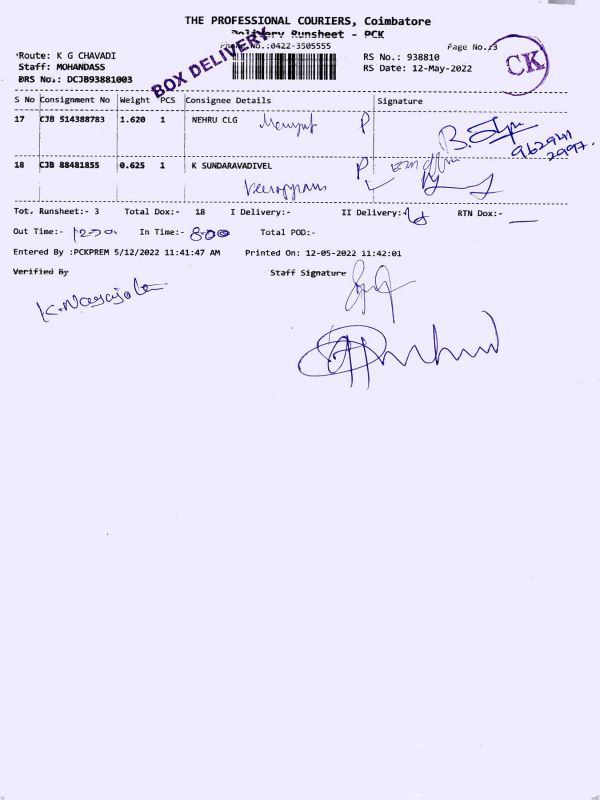 THE PROFESSIONAL COURIERS, Coimbatore
Delivery Runsheet - PCK
Phone No.:0422-3505555
Page No.:3
Route: K G CHAVADI
RS No.: 938810
Staff: MOHANDASS
RS Date: 12-May-2022
DRS No.: DCJB93881003
BOX DELIVERY
CK
S No Consignment No Weight PCS Consignee Details Signature
17 CJB 514388783 1.620 1 NEHRU CLG P
18 CJB 88481855 0.625 1 K SUNDARAVADIVEL P
Tot. Runsheet:- 3 Total Dox:- 18 I Delivery:- II Delivery:- RTN Dox:-
Out Time:- In Time:- 8:00 Total POD:-
Entered By :PCKPREM 5/12/2022 11:41:47 AM Printed On: 12-05-2022 11:42:01
Verified By Staff Signature